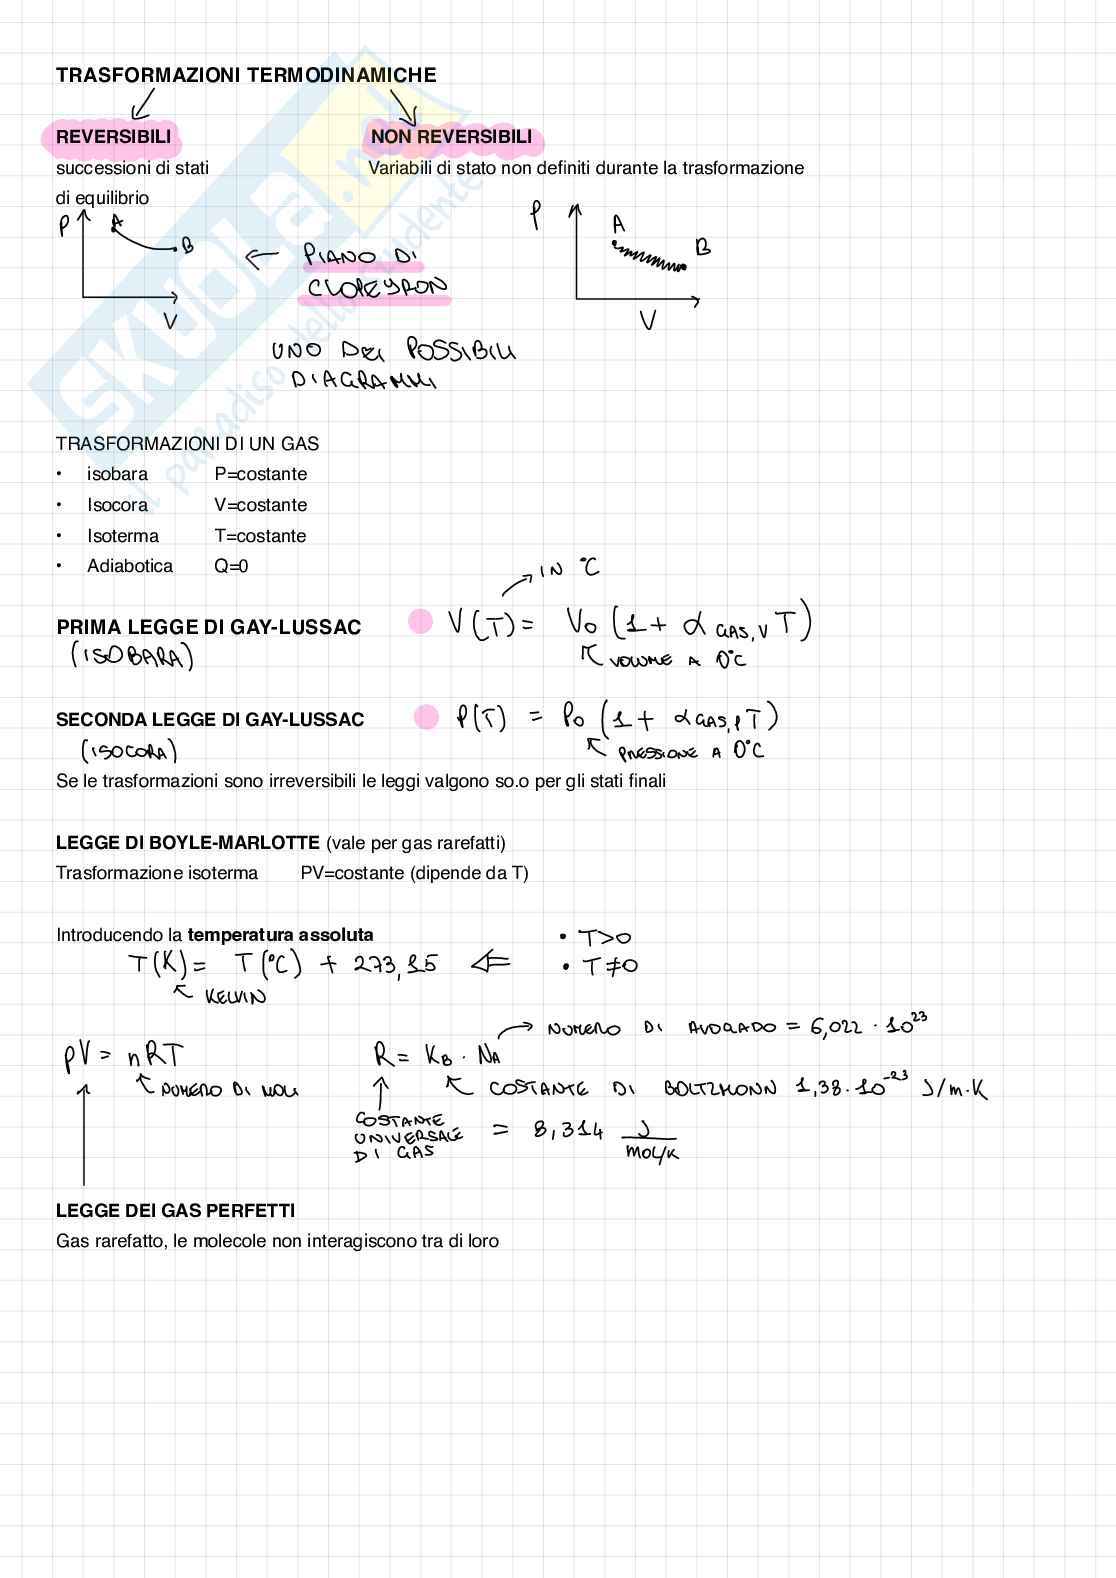 TRASFORMAZIONI TERMODINAMICHE
REVERSIBILI
NON REVERSIBILI
successioni di stati
di equilibrio
Variabili di stato non definiti durante la trasformazione
P A B V
← PIANO DI
CLAPEYRON
UNO DEI POSSIBILI
DIAGRAMMI
P A B V
TRASFORMAZIONI DI UN GAS
• isobara P=costante
• Isocora V=costante
• Isoterma T=costante
• Adiabotica Q=0
IN °C
PRIMA LEGGE DI GAY-LUSSAC V(T) = V₀ (1 + α GAS, V T)
(ISOBARA) VOLUME A 0°C
SECONDA LEGGE DI GAY-LUSSAC P(T) = P₀ (1 + α GAS, P T)
(ISOCORA) PRESSIONE A 0°C
Se le trasformazioni sono irreversibili le leggi valgono so.o per gli stati finali
LEGGE DI BOYLE-MARLOTTE (vale per gas rarefatti)
Trasformazione isoterma PV=costante (dipende da T)
Introducendo la temperatura assoluta • T>0
T(K) = T(°C) + 273,15 ⇐ • T≠0
KELVIN
NUMERO DI AVOGADO = 6,022 · 10²³
PV = nRT R = KB · NA
NUMERO DI MOLI COSTANTE DI BOLTZMONN 1,38 · 10⁻²³ J/m·K
COSTANTE
UNIVERSALE
DI GAS
= 8,314 J/mol/K
LEGGE DEI GAS PERFETTI
Gas rarefatto, le molecole non interagiscono tra di loro
SKUOLA.net
il paradiso dello studente